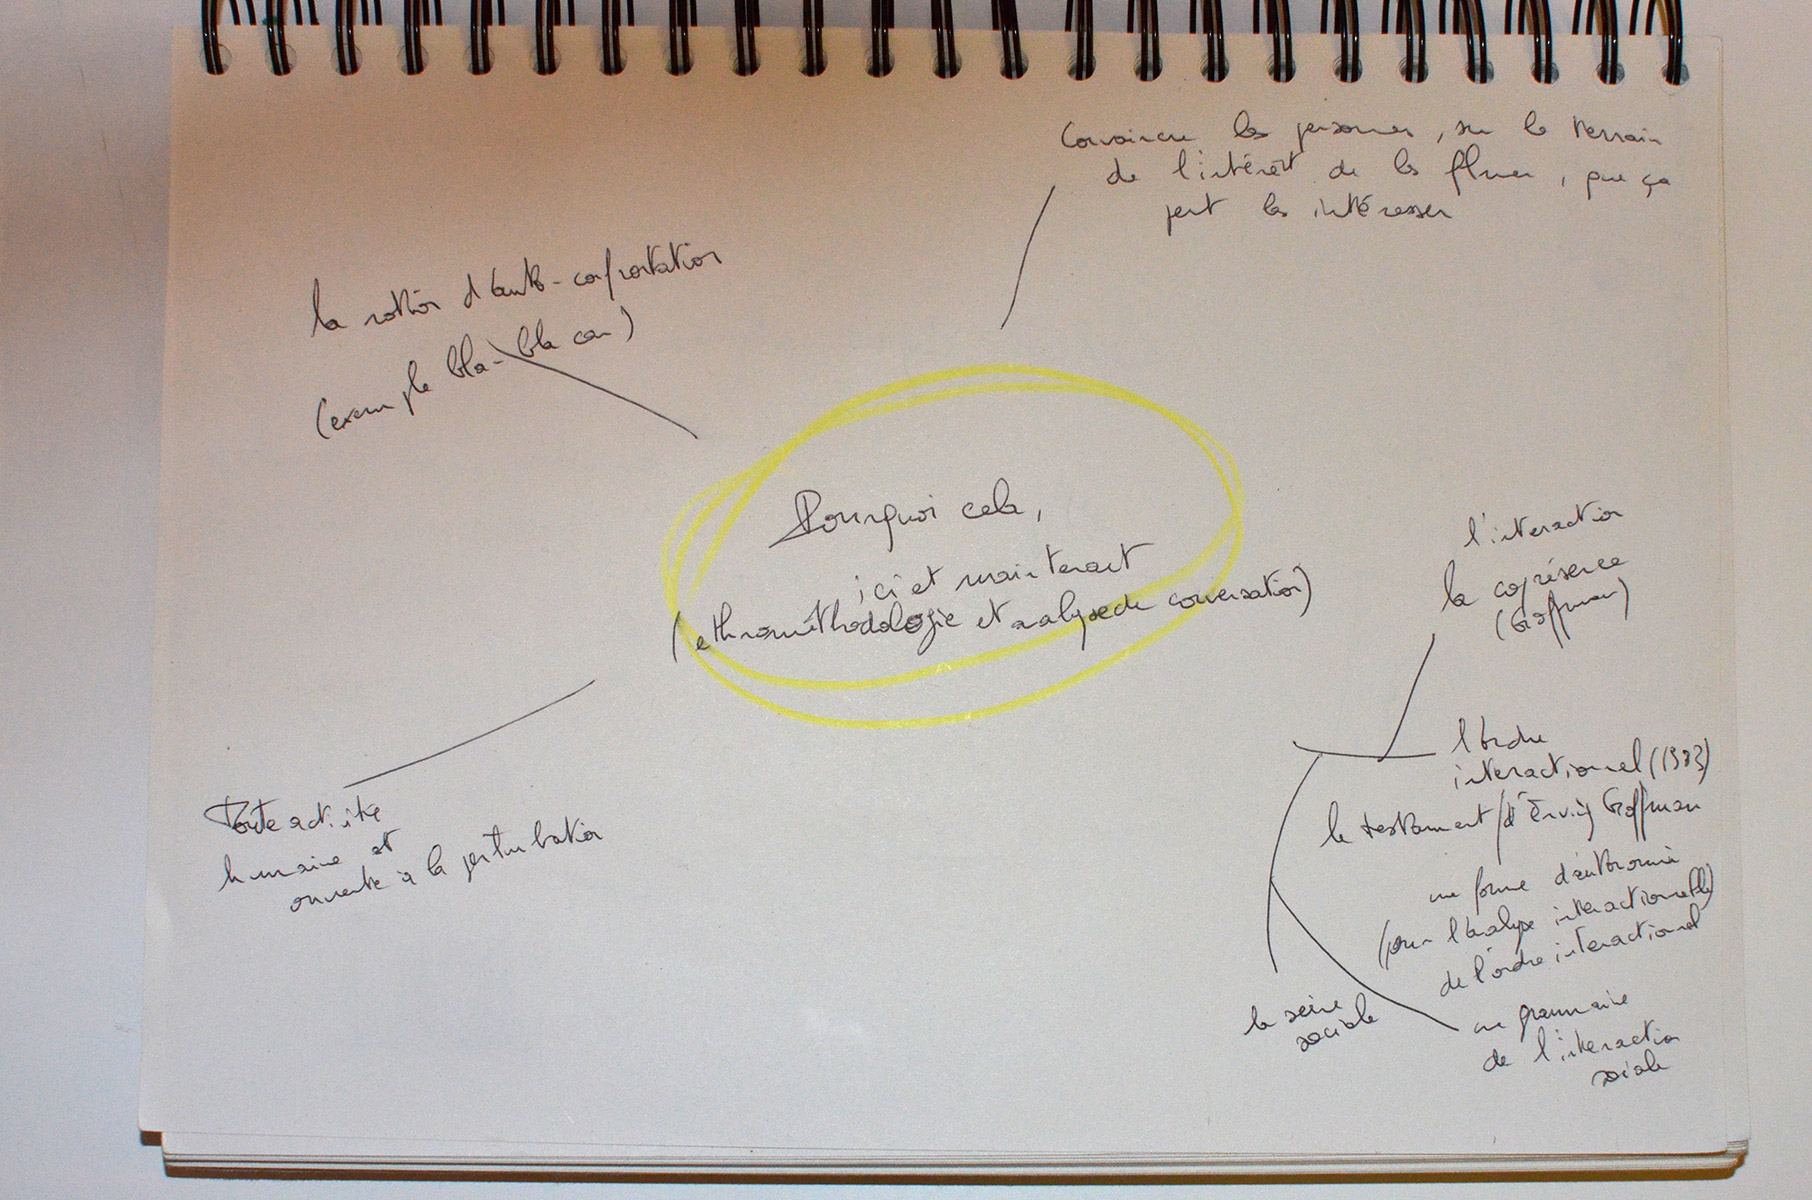 Convaincre les personnes, sur le terrain
de l'intérêt de les filmer, que ça
peut les intéresser
la notion d'auto-confrontation
(exemple bla-bla car)
Pourquoi cela,
ici et maintenant
(ethnométhodologie et analyse de conversation)
l'interaction
la coprésence
(Goffman)
l'ordre
interactionnel (1983)
le testament d'Erving Goffman
une forme d'autonomie
(pour l'analyse interactionnelle)
de l'ordre interactionnel
la scène
sociale
une grammaire
de l'interaction
sociale
Toute activité
humaine est
ouverte à la perturbation